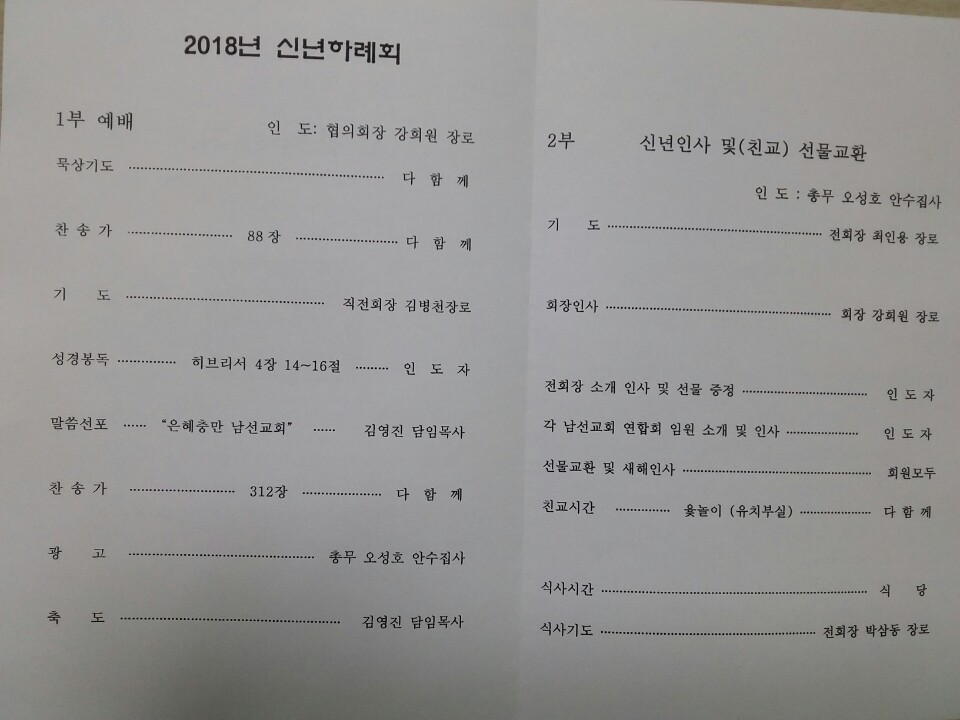 2018년 신년하례회
1부 예배 인 도: 협의회장 강희원 장로
묵상기도 다 함 께
찬 송 가 88장 다 함 께
기 도 직전회장 김병천장로
성경봉독 히브리서 4장 14~16절 인 도 자
말씀선포 “은혜충만 남선교회” 김영진 담임목사
찬 송 가 312장 다 함 께
광 고 총무 오성호 안수집사
축 도 김영진 담임목사
2부 신년인사 및(친교) 선물교환
인 도 : 총무 오성호 안수집사
기 도 전회장 최인용 장로
회장인사 회장 강희원 장로
전회장 소개 인사 및 선물 증정 인 도 자
각 남선교회 연합회 임원 소개 및 인사 인 도 자
선물교환 및 새해인사 회원모두
친교시간 윷놀이 (유치부실) 다 함 께
식사시간 식 당
식사기도 전회장 박삼동 장로